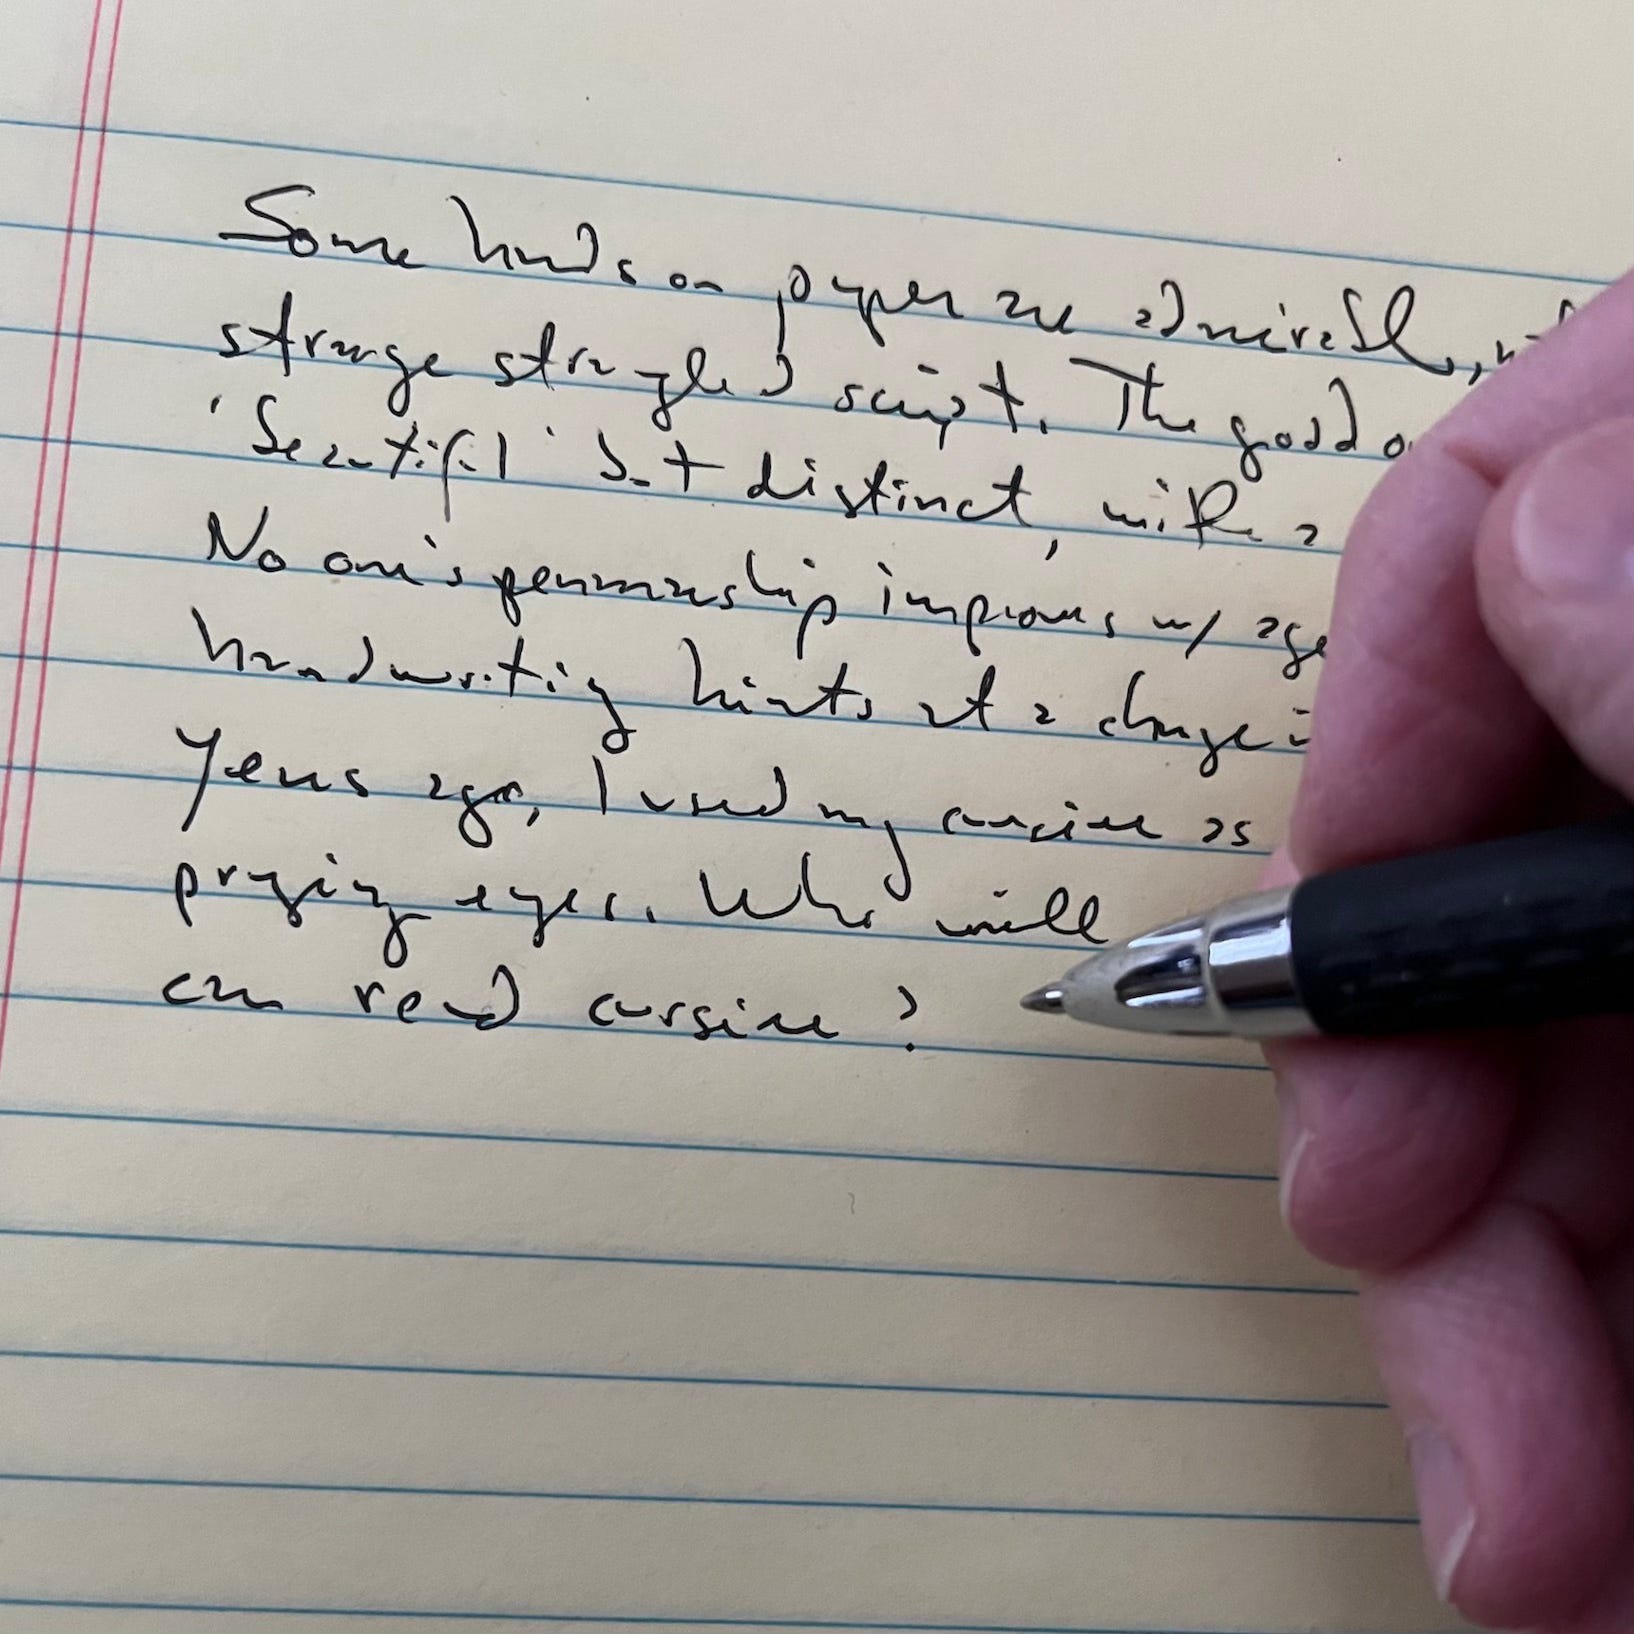 Some hands on paper are admirable,
strange strangled script. The good
'beautiful' but distinct, with a
No one's penmanship improves w/ age
handwriting hints at a change
Years ago, I used my cursive as
prying eyes. Who will
can read cursive?